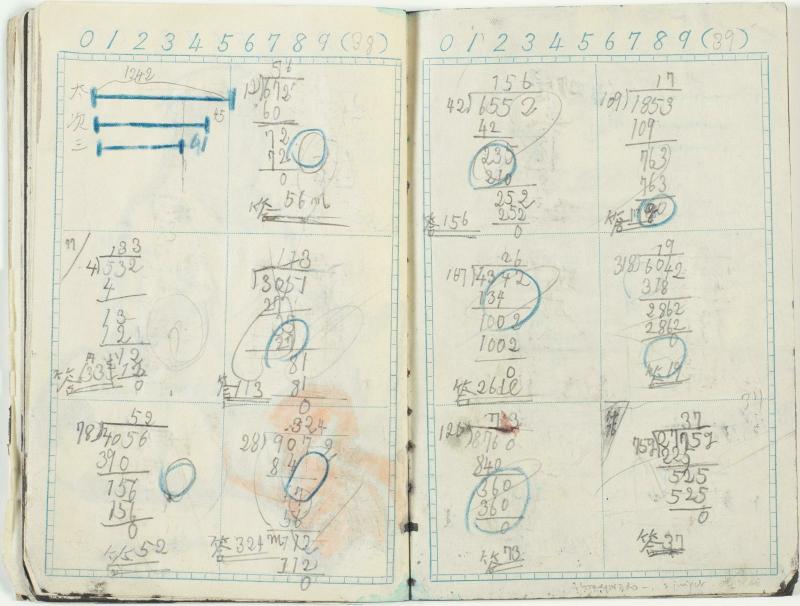 0 1 2 3 4 5 6 7 8 9 (38)
1242
大
次
三
45
41
56
12)672
60
72
72
0
答 56m
133
4)532
4
13
12
12
12
0
答 133
113
)3051
27
81
81
0
答 113
52
78)4056
390
156
156
0
答 52
324
28)9072
84
56
112
112
0
答 324m
0 1 2 3 4 5 6 7 8 9 (39)
156
42)6552
42
235
210
252
252
0
答 156
17
109)1853
109
763
763
0
答
26
167)4342
334
1002
1002
0
答 26
19
318)6042
318
2862
2862
0
答 19
73
120)8760
840
360
360
0
答 73
37
)27752
225
525
525
0
答 37